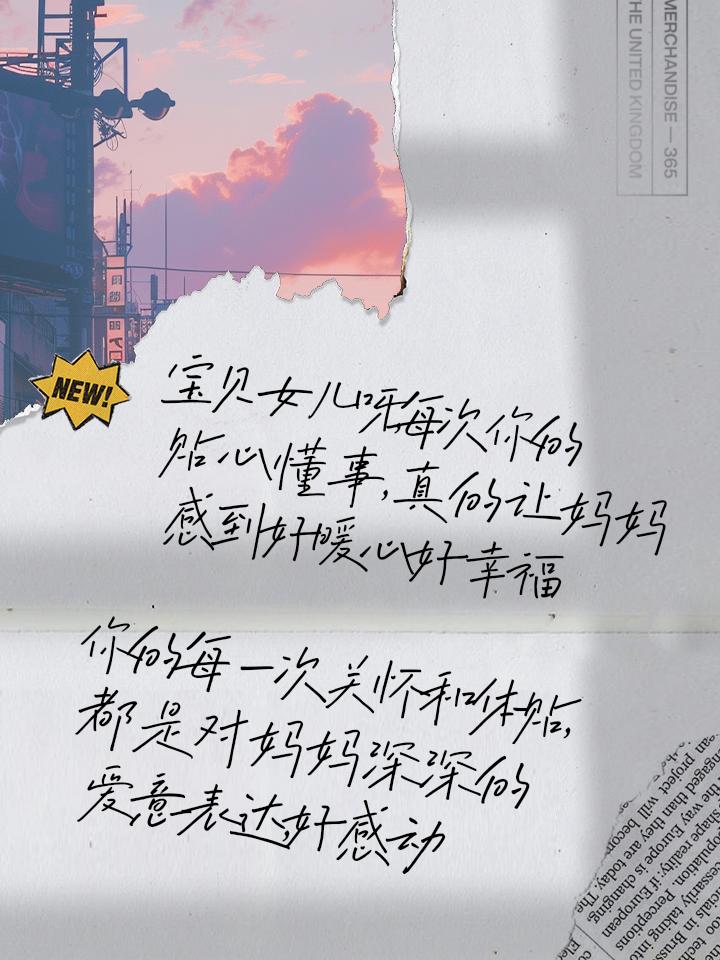 MERCHANDISE — 365
THE UNITED KINGDOM
NEW!
宝贝女儿呀每次你的
贴心懂事,真的让妈妈
感到好暖心好幸福
你的每一次关怀和体贴,
都是对妈妈深深的
爱意表达,好感动
project will becom
ngaged than they are today. The
the way Europe is changing
shape reality: if European
opulation. Perceptions
cessarily taking into
icials in Bruss
too techn